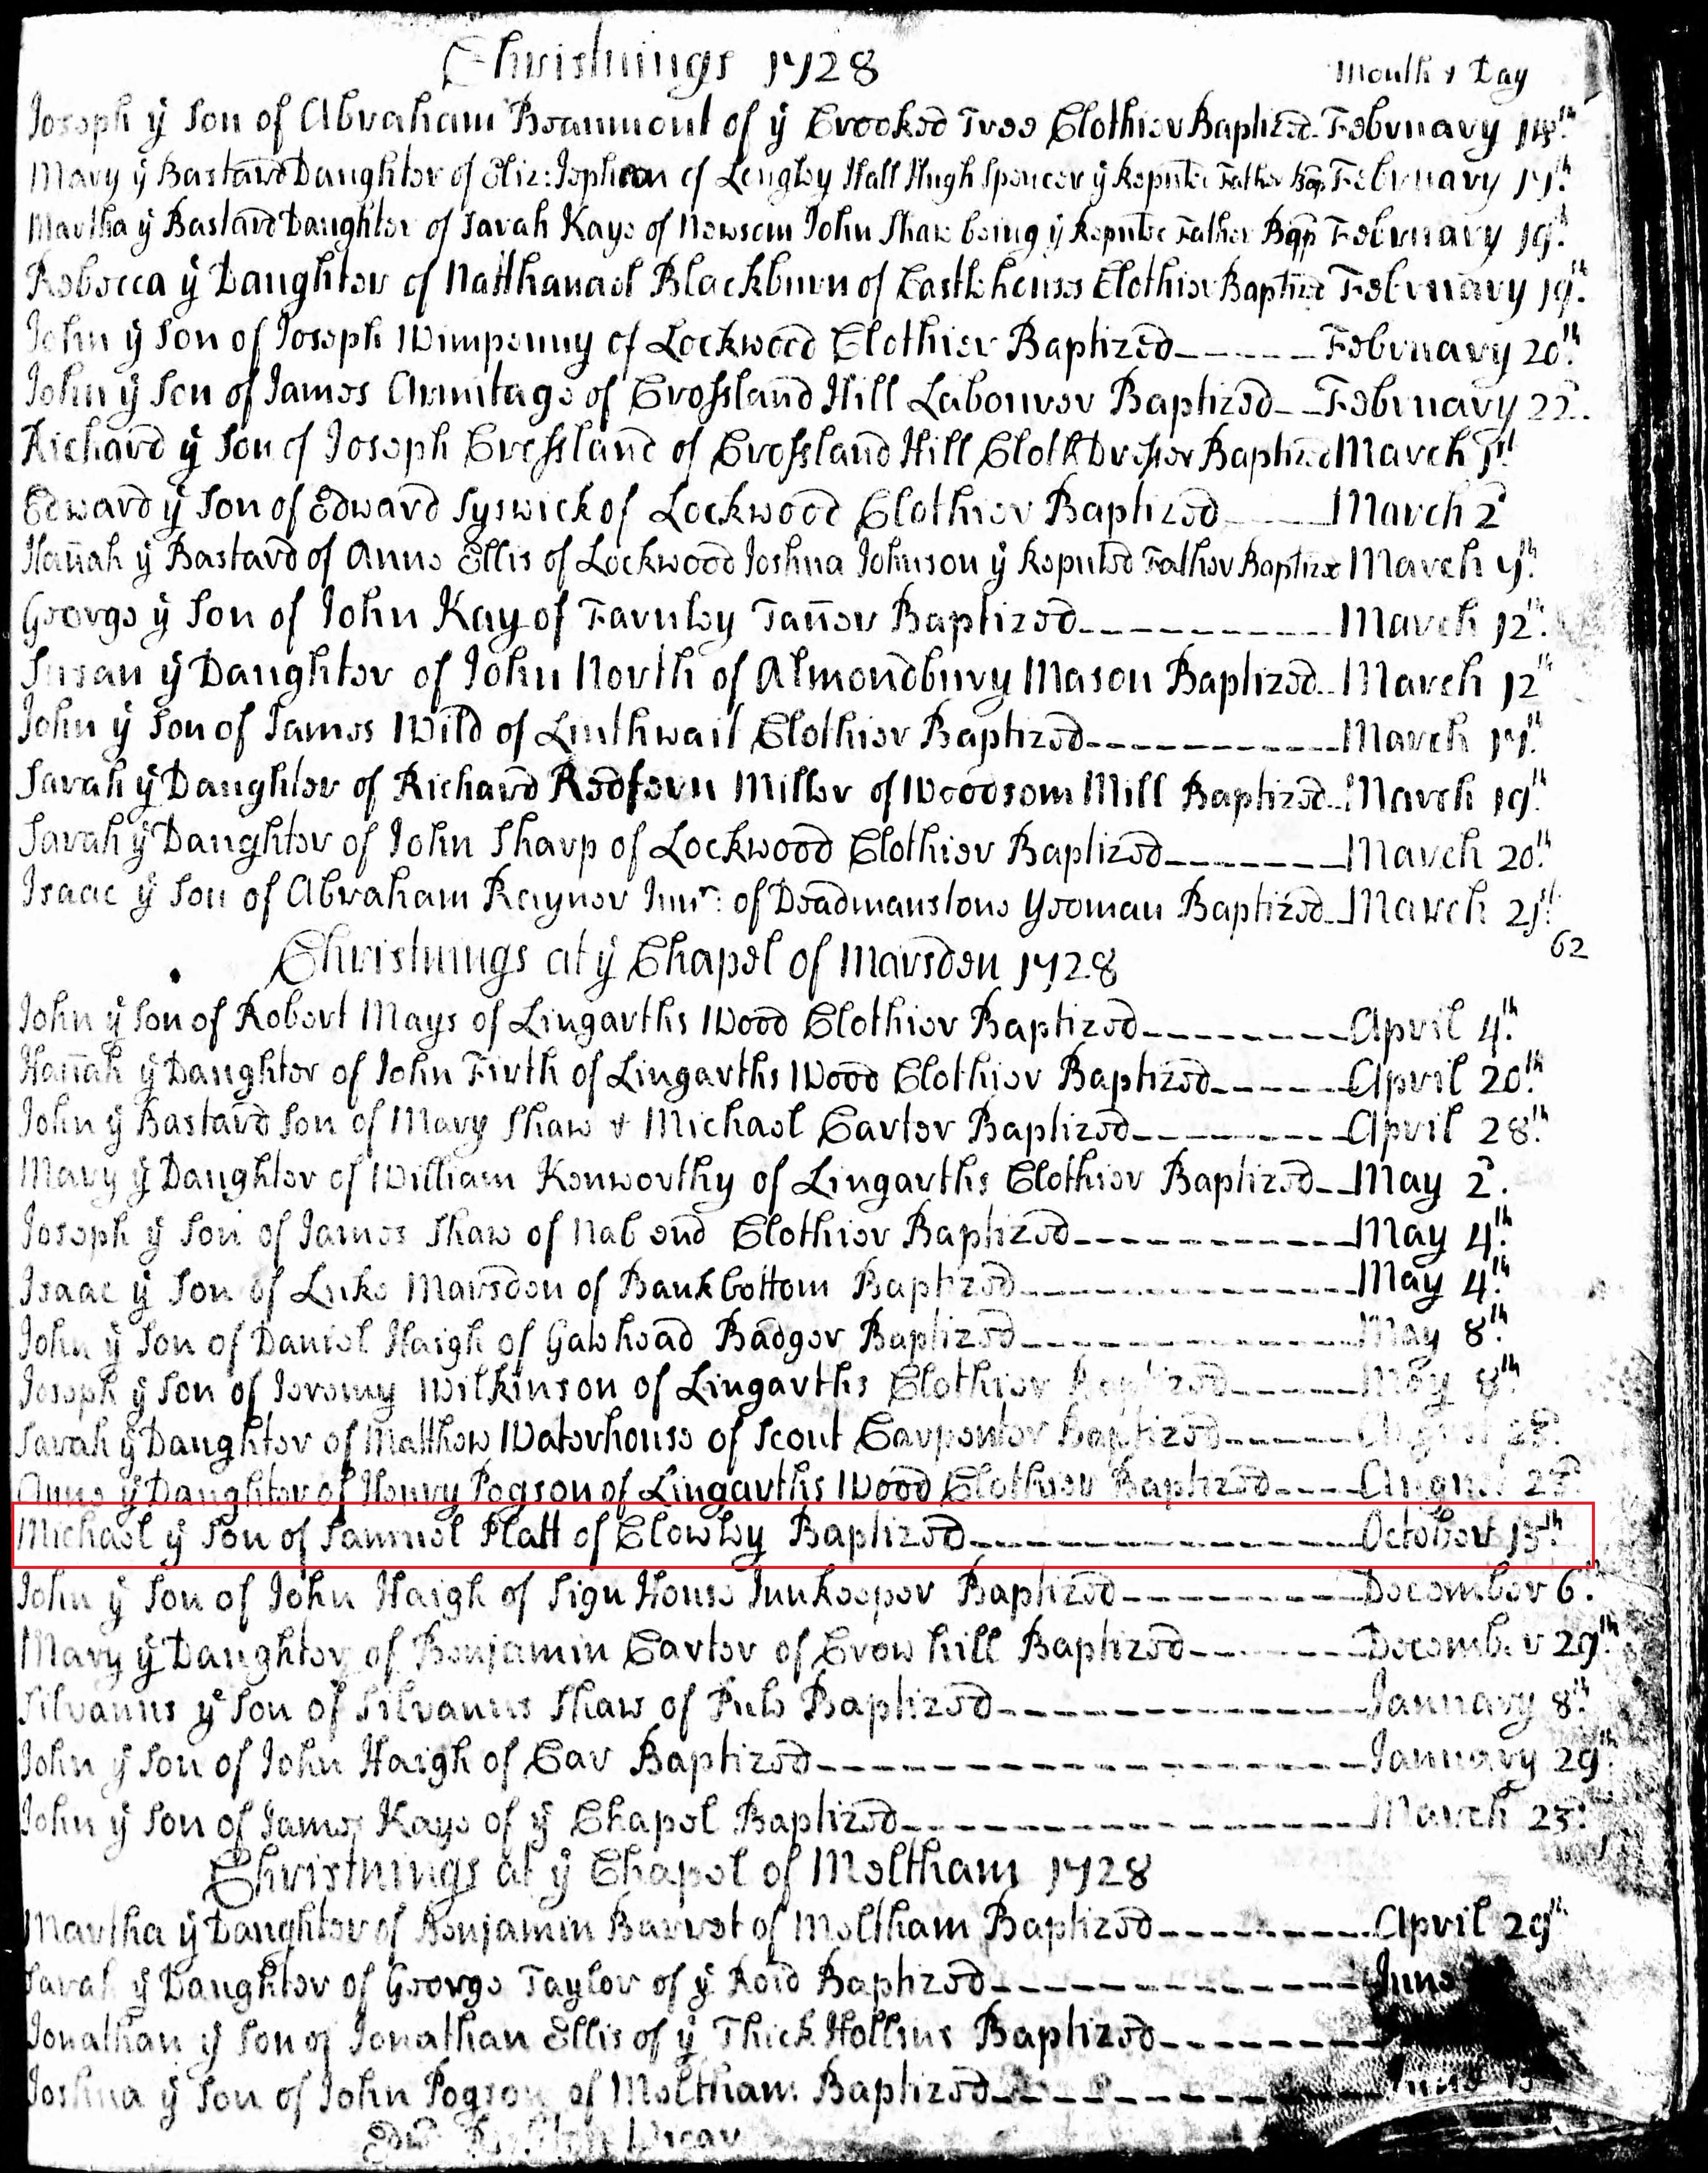 Christnings 1728 Month & Day
Joseph ÿ Son of Abraham Beaumont of ÿ Crooked Tree Clothier Baptized February 14th
Mary ÿ Bastard Daughter of Eliz: of Longley Hall Hugh Spencer ÿ Reputed Father Bap February 17th
Martha ÿ Bastard Daughter of Sarah Kaye of Newsom John Shaw being ÿ Reputed Father Bap February 19th
Rebecca ÿ Daughter of Natthanael Blackburn of Castlehouses Clothier Baptized February 19th
John ÿ Son of Joseph Wimpenny of Lockwood Clothier Baptized February 20th
John ÿ Son of James Armitage of Crossland Hill Labourer Baptized February 22d
Richard ÿ Son of Joseph Crossland of Crossland Hill Cloth Dresser Baptized March 1st
Edward ÿ Son of Edward Syswick of Lockwood Clothier Baptized March 2d
Hañah ÿ Bastard of Anne Ellis of Lockwood Joshua Johnson ÿ Reputed Father Baptized March 7th
George ÿ Son of John Kay of Farnley Tañer Baptized March 12th
Susan ÿ Daughter of John North of Almondbury Mason Baptized March 12th
John ÿ Son of James Wild of Linthwait Clothier Baptized March 17th
Sarah ÿ Daughter of Richard Redfern Miller of Woodsom Mill Baptized March 19th
Sarah ÿ Daughter of John Sharp of Lockwood Clothier Baptized March 20th
Isaac ÿ Son of Abraham Rayner Junr: of Deadmanstone Yeoman Baptized March 21st
62
Christnings at ÿ Chapel of Marsden 1728
John ÿ Son of Robert Mays of Lingarths Wood Clothier Baptized April 4th
Hañah ÿ Daughter of John Firth of Lingarths Wood Clothier Baptized April 20th
John ÿ Bastard Son of Mary Shaw & Michael Carter Baptized April 28th
Mary ÿ Daughter of William Kenworthy of Lingarths Clothier Baptized May 2d
Joseph ÿ Son of James Shaw of Nab end Clothier Baptized May 4th
Isaac ÿ Son of Luke Marsden of Bankbottom Baptized May 4th
John ÿ Son of Daniel Haigh of Gatehead Badger Baptized May 8th
Joseph ÿ Son of Jeremy Wilkinson of Lingarths Clothier Baptized May 8th
Sarah ÿ Daughter of Matthew Waterhouse of Scout Carpenter Baptized August
Anne ÿ Daughter of Henry Pogson of Lingarths Wood Clothier Baptized August
Michael ÿ Son of Samuel Platt of Clowley Baptized October 13th
John ÿ Son of John Haigh of Sign House Innkeeper Baptized December 6th
Mary ÿ Daughter of Benjamin Carter of Crow hill Baptized December 29th
Silvanus ÿ Son of Silvanus Shaw of Baptized January 8th
John ÿ Son of John Haigh of Car Baptized January 29th
John ÿ Son of James Kaye of ÿ Chapel Baptized March 23d
Christnings at ÿ Chapel of Meltham 1728
Martha ÿ Daughter of Benjamin Barret of Meltham Baptized April 29th
Sarah ÿ Daughter of George Taylor of ÿ Roid Baptized June
Jonathan ÿ Son of Jonathan Ellis of ÿ Thick Hollins Baptized
Joshua ÿ Son of John Pogson of Meltham Baptized
Vicar